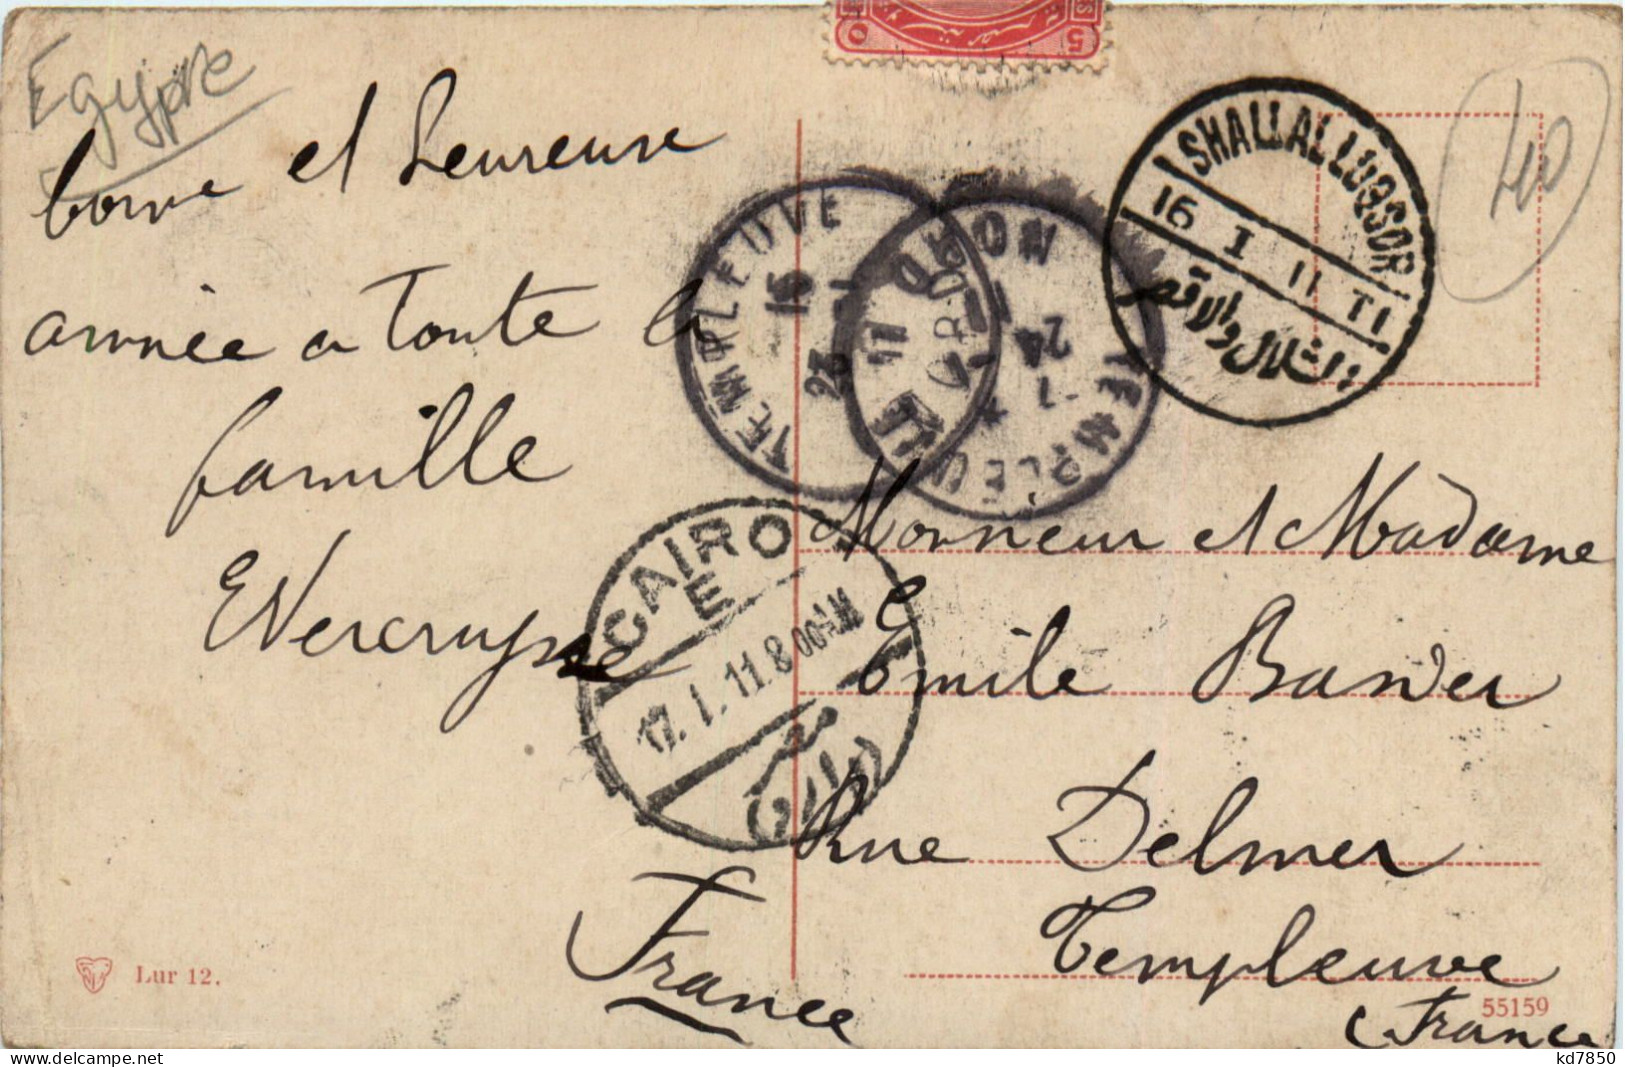 Egypte
bonne et heureuse
année a toute la
famille
EVercruysse
5
0
SHALLAL LUQSOR
16 I 11 T1
الشلال والاقصر
TEMPLEUVE
15
23
NORD
TEMPLEUVE
24
CAIRO
E
17. I. 11. 8 00 AM
40
Monsieur et Madame
Emile
Rue Delmer
Templeuve
France
(France
Lur 12.
55159
kd7850